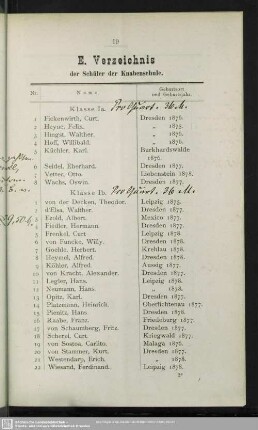 19
E. Verzeichnis
der Schüler der Knabenschule.
Nr. Name Geburtsort und Geburtsjahr.
Klasse Ia. Pro Quart. 36 M.
1 Fickenwirth, Curt. Dresden 1876.
2 Heyne, Felix. „ 1875.
3 Hingst, Walther. „ 1876.
4 Hoff, Willibald. „ 1876.
5 Küchler, Karl. Burkhardswalde
1876.
6 Seidel, Eberhard. Dresden 1876.
7 Vetter, Otto. Liebenstein 1876.
8 Wachs, Oswin. Dresden 1876.
Klasse Ib. Pro Quart. 36 M.
1 von der Decken, Theodor. Leipzig 1875.
2 d'Elsa, Walther. Dresden 1877.
3 Erold, Albert. Mexico 1877.
4 Fiedler, Hermann Dresden 1877.
5 Frenkel, Curt Leipzig 1878.
6 von Funcke, Willy. Dresden 1878.
7 Goehle, Herbert. Kreblau 1878.
8 Heymel, Alfred. Dresden 1878.
9 Köhler, Alfred Aussig 1877.
10 von Kracht, Alexander. Dresden 1877.
11 Legler, Hans. Leipzig 1878.
12 Neumann, Hans. „ 1878.
13 Opitz, Karl. Dresden 1877.
14 Platzmann, Heinrich. Oberlichtenau 1877.
15 Plenitz, Hans Dresden 1878.
16 Raabe, Franz. Friedeburg 1877.
17 von Schaumberg, Fritz. Dresden 1877.
18 Scherel, Curt. Kriegwald 1877.
19 von Sostoa, Carlito. Malaga 1876.
20 von Stammer, Kurt. Dresden 1877.
21 Westendarp, Erich. „ 1878.
22 Wiesand, Ferdinand. Leipzig 1878.
2*